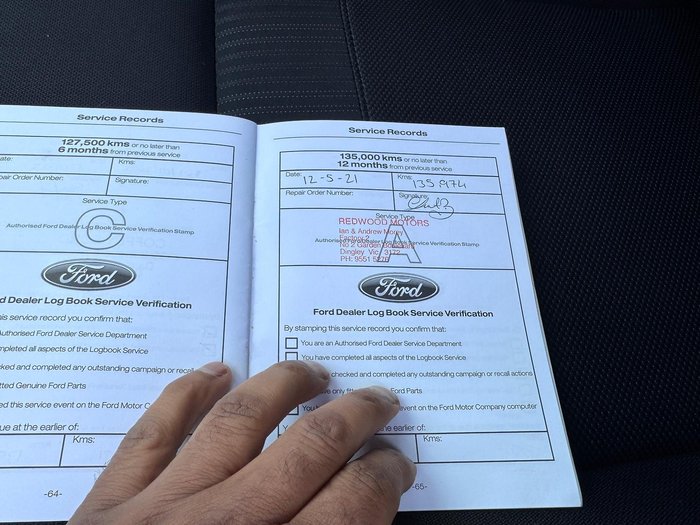 Service Records
127,500 kms or no later than
6 months from previous service
ate:
Kms:
pair Order Number:
Signature:
Service Type
C
Authorised Ford Dealer Log Book Service Verification Stamp
Ford
d Dealer Log Book Service Verification
his service record you confirm that:
Authorised Ford Dealer Service Department
mpleted all aspects of the Logbook Service
cked and completed any outstanding campaign or recall
tted Genuine Ford Parts
ed this service event on the Ford Motor C
ue at the earlier of:
Kms:
-64-
Service Records
135,000 kms or no later than
12 months from previous service
Date: 12-5-21
Kms: 135 974
Repair Order Number:
Signature:
Service Type
REDWOOD MOTORS
Ian & Andrew Morey
Factory 2
Authorised Ford Dealer Log Book Service Verification Stamp
No 2 Garden Boulevard
Dingley Vic 3172
PH: 9551 5276
A
Ford
Ford Dealer Log Book Service Verification
By stamping this service record you confirm that:
You are an Authorised Ford Dealer Service Department
You have completed all aspects of the Logbook Service
checked and completed any outstanding campaign or recall actions
ve only fitt Ford Parts
You h event on the Ford Motor Company computer
Y e earlier of:
Kms:
-65-